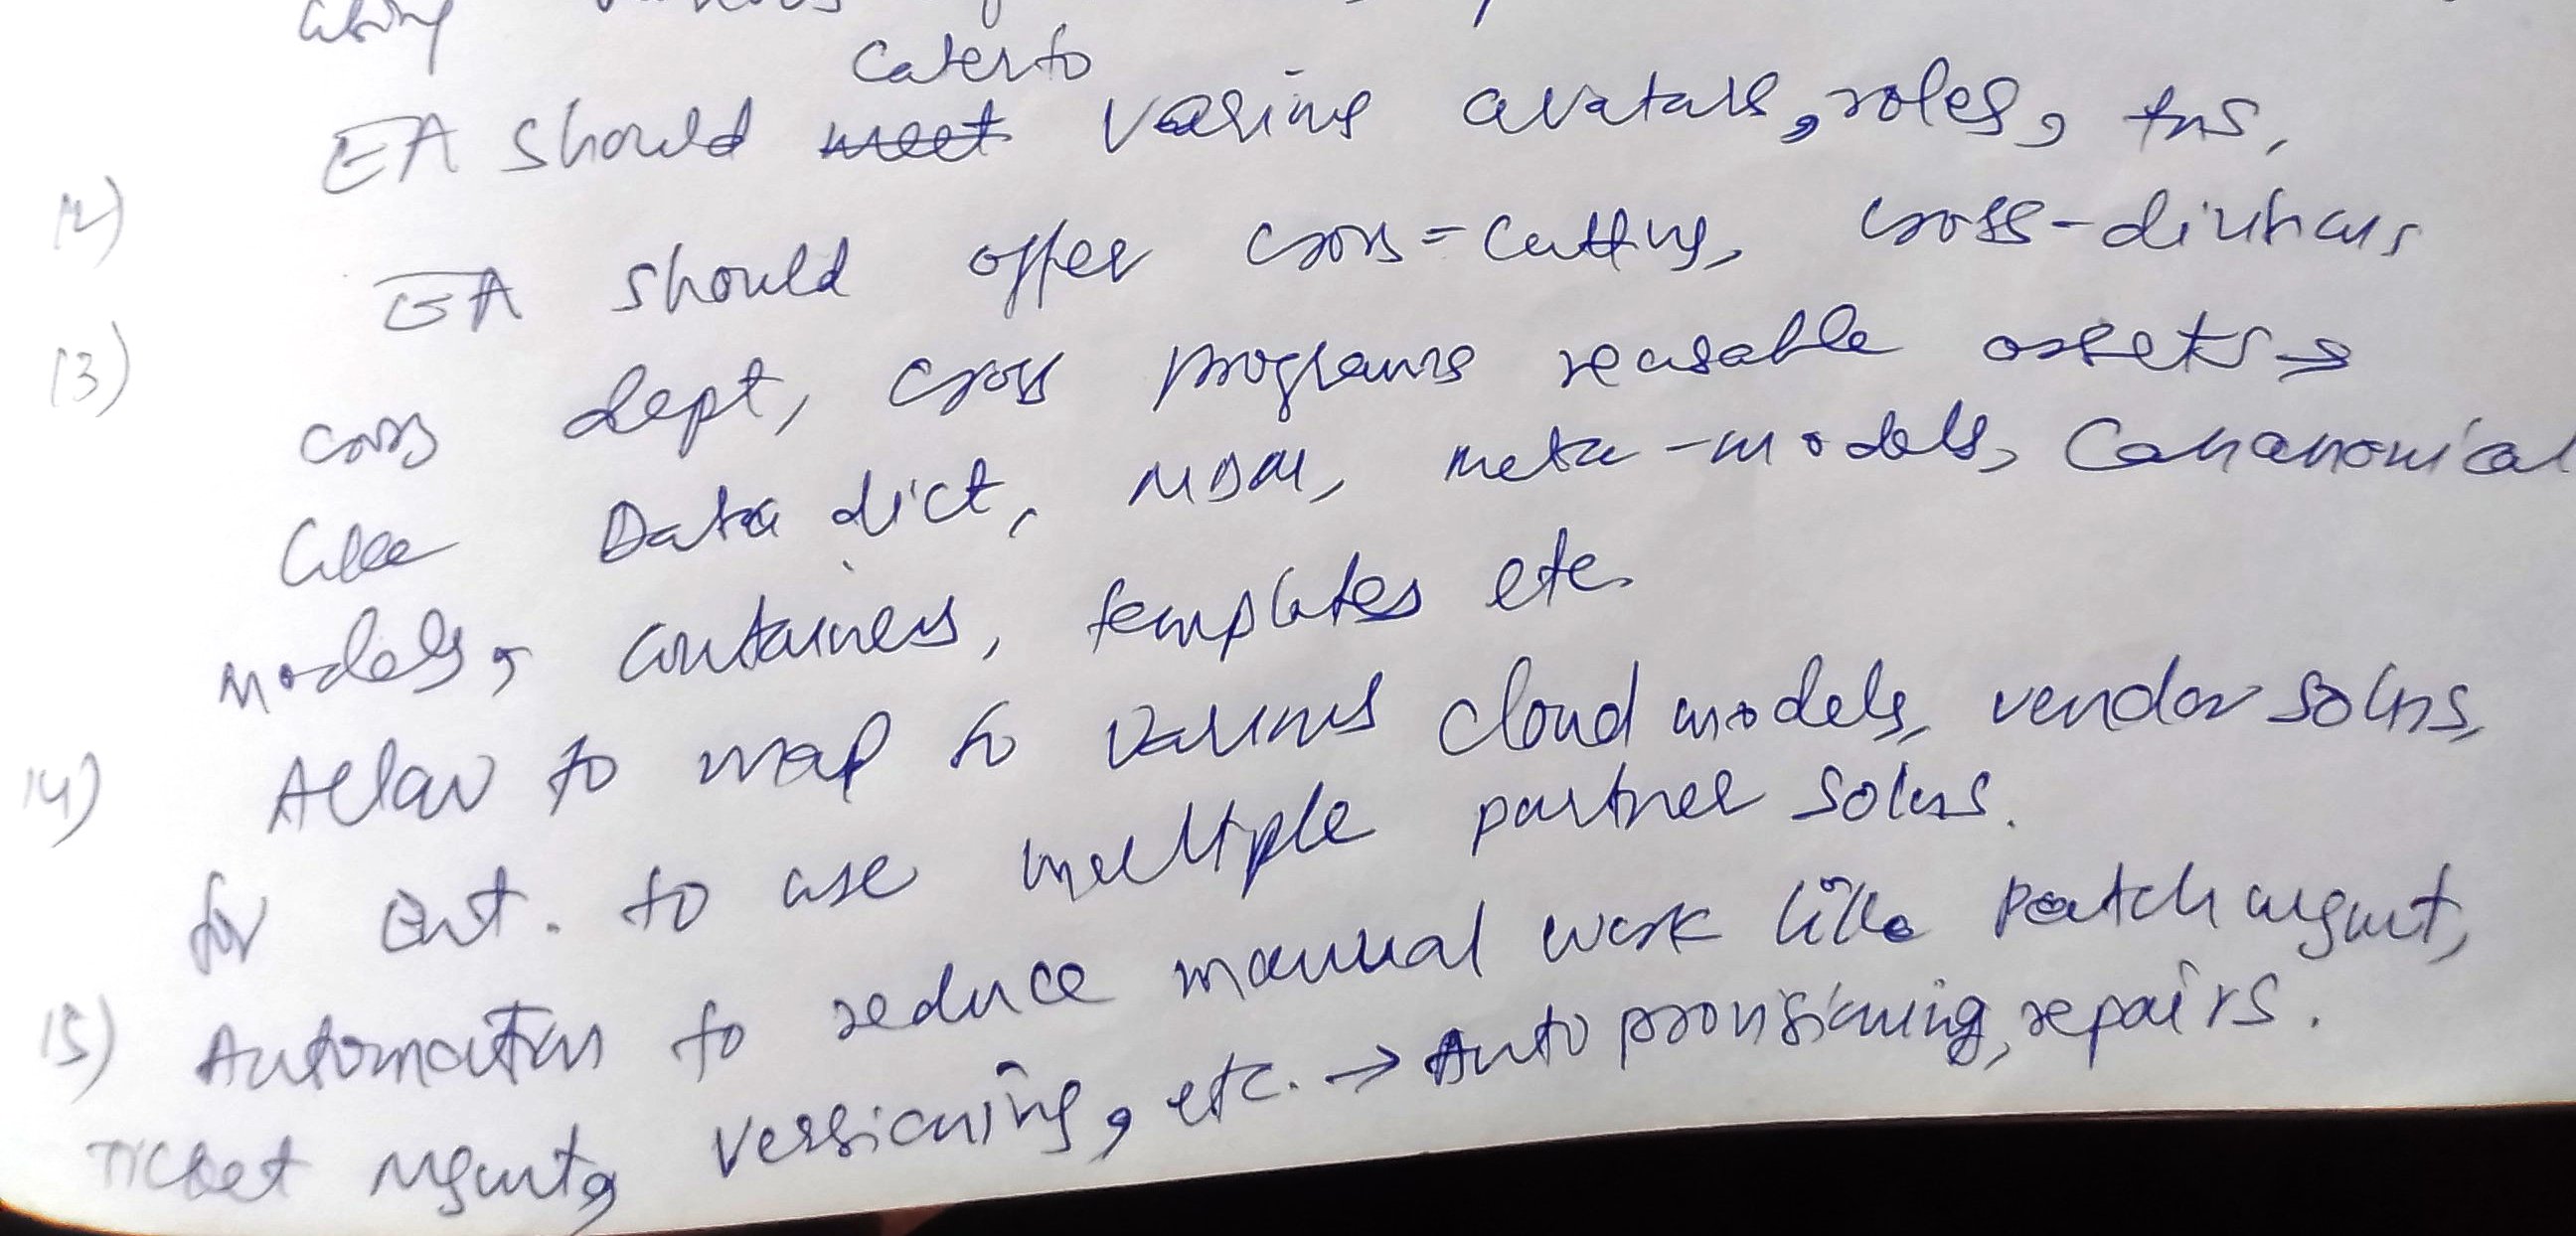 using various
cater to
12) EA should meet varing avatars, roles, fns,
13) EA should offer cross-cutting, cross-divisions
cross dept, cross programs reusable assets →
like Data dict, MDM, meta-models, Cananonical
models, containers, templates etc.
14) Allow to map to various cloud models, vendor solns,
for ent. to use multiple partner solns.
15) Automation to reduce manual work like patch mgmt,
Ticket mgmt, versioning, etc. → Auto provisioning, repairs.